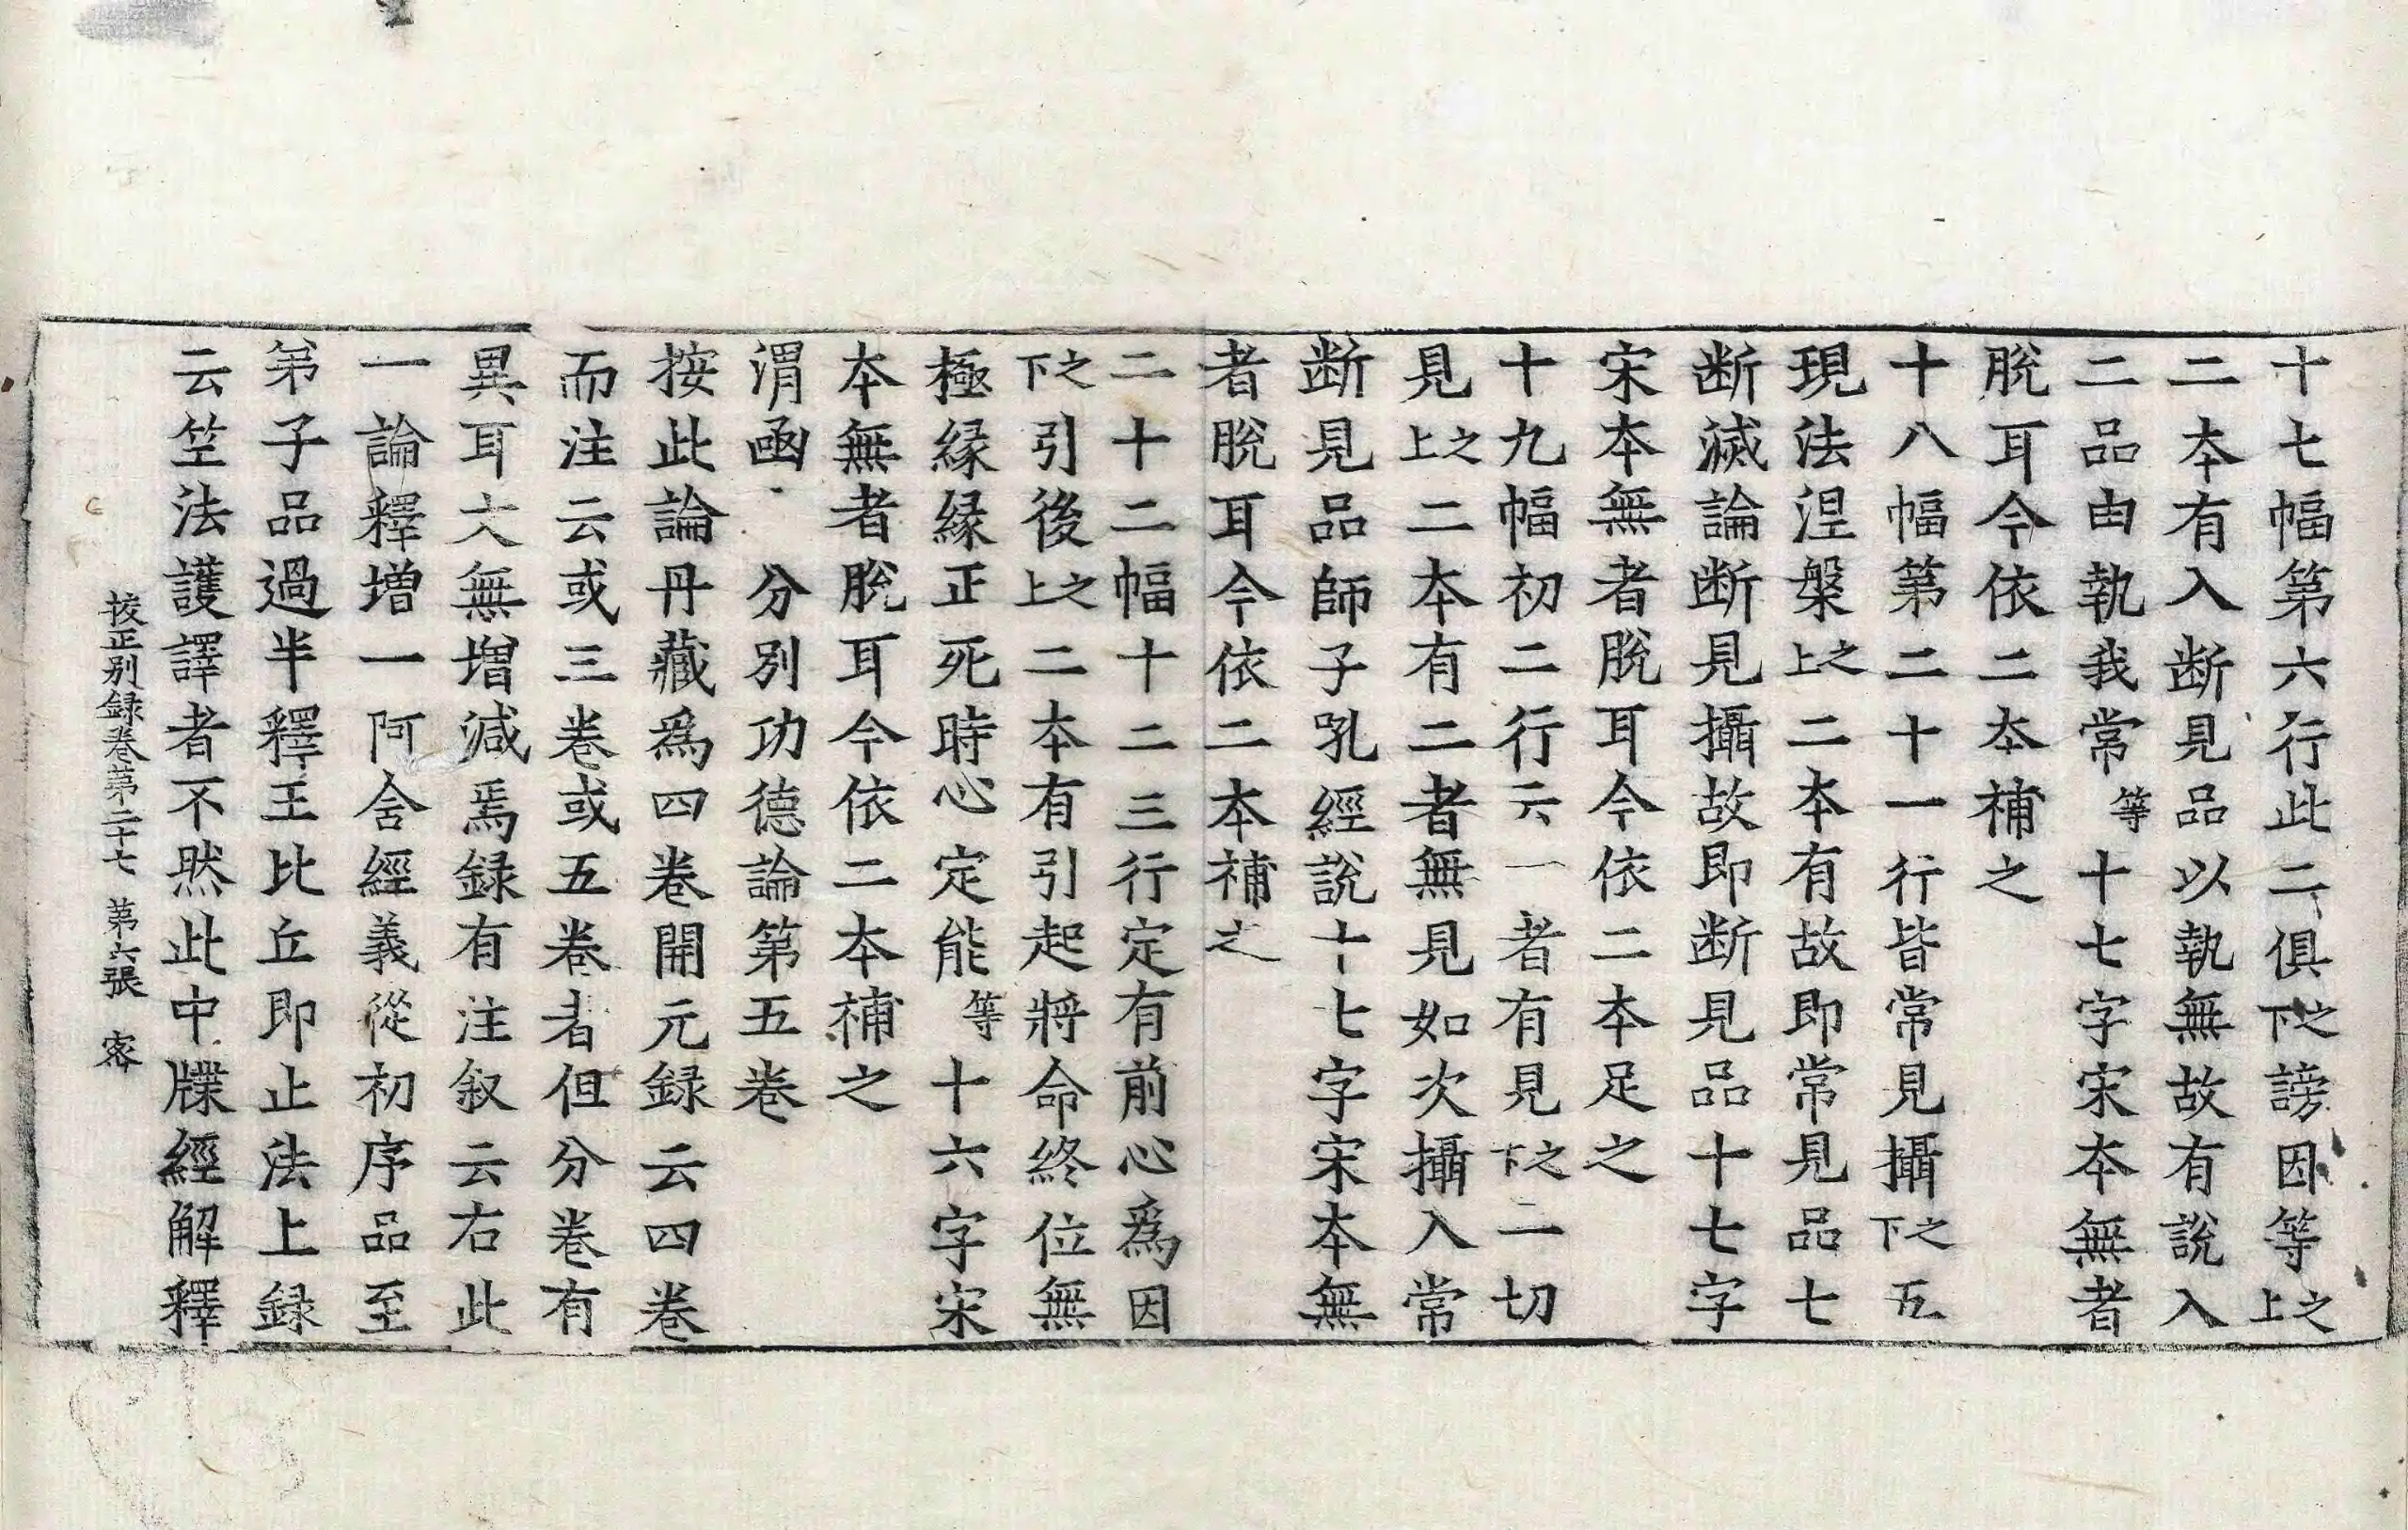 十七幅第六行此二俱下之謗因等上之
二本有入断見品以執無故有說入
二品由執我常等十七字宋本無者
脫耳今依二本補之
十八幅第二十一行皆常見攝下之五
現法涅槃上之二本有故即常見品七
断滅論断見攝故即断見品十七字
宋本無者脫耳今依二本足之
十九幅初二行六一者有見下之二切
見上之二本有二者無見如次攝入常
断見品師子吼經說十七字宋本無
者脫耳今依二本補之
二十二幅十二三行定有前心爲因
下之引後上之二本有引起將命終位無
極緣緣正死時心定能等十六字宋
本無者脫耳今依二本補之
渭函 分別功德論第五卷
按此論丹藏爲四卷開元録云四卷
而注云或三卷或五卷者但分卷有
異耳大無增減焉録有注叙云右此
一論釋增一阿含經義從初序品至
弟子品過半釋王比丘即止法上録
云竺法護譯者不然此中牒經解釋
挍正別録卷第二十七 第六張 宻